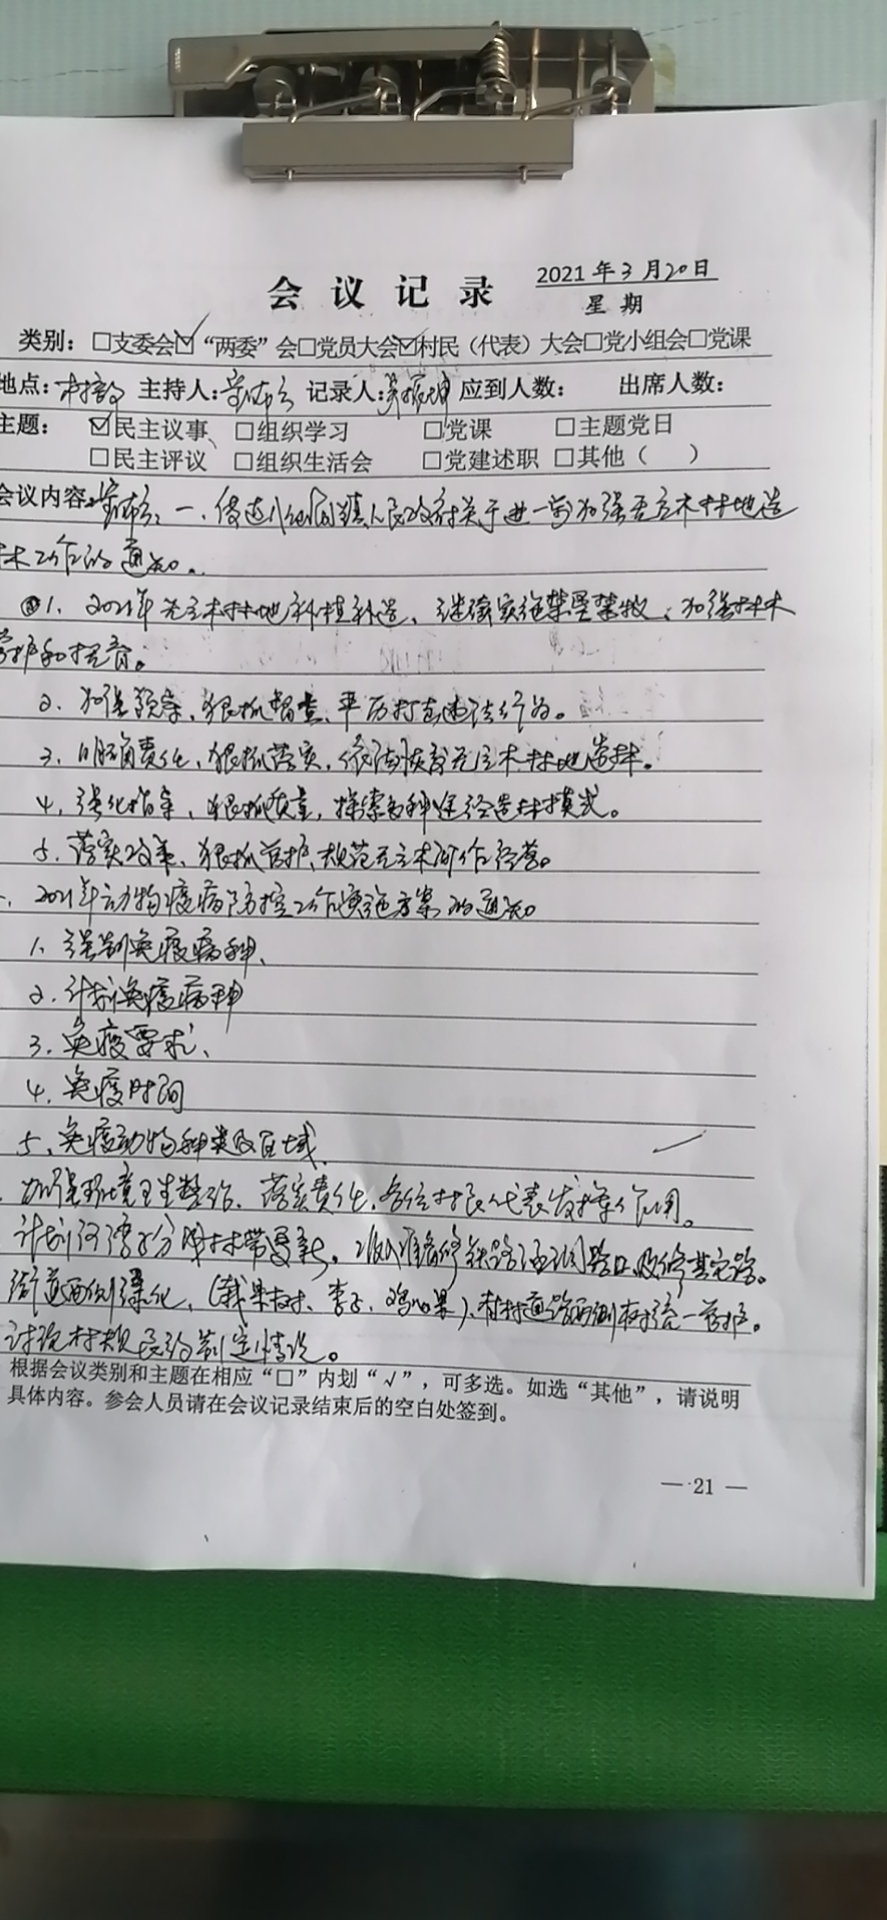 会议记录
2021年3月20日
星期
类别：□支委会☑“两委”会□党员大会☑村民（代表）大会□党小组会□党课
地点：村部 主持人： 记录人： 应到人数： 出席人数：
主题：☑民主议事、□组织学习 □党课 □主题党日
□民主评议 □组织生活会 □党建述职 □其他（ ）
会议内容： 一、传达 镇人民政府关于进一步加强无立木林地造
林工作的通知。
1、2021年无立木林地补植补造、继续实施禁垦禁牧、加强林木
管护和抚育。
2、加强领导、狠抓督查、严厉打击违法行为。
3、明确责任、狠抓落实，依法恢复无立木林地造林。
4、强化指导、狠抓质量，探索多种途径造林模式。
5、落实政策、狠抓管护、规范无立木 作经营。
、2021年动物疫病防控工作实施方案的通知
1、强制免疫病种、
2、计划免疫病种
3、免疫要求、
4、免疫时间
5、免疫动物种类及区域
、加强环境卫生整治、落实责任、各位村民代表发挥作用。
计划 林带更新， 准备修铁路涵洞路口及修 路。
街道两侧绿化、（栽果树、李子、鸡心果）、 村通路两侧树统一管护。
讨论村规民约制定情况。
根据会议类别和主题在相应“□”内划“√”，可多选。如选“其他”，请说明
具体内容。参会人员请在会议记录结束后的空白处签到。
— 21 —